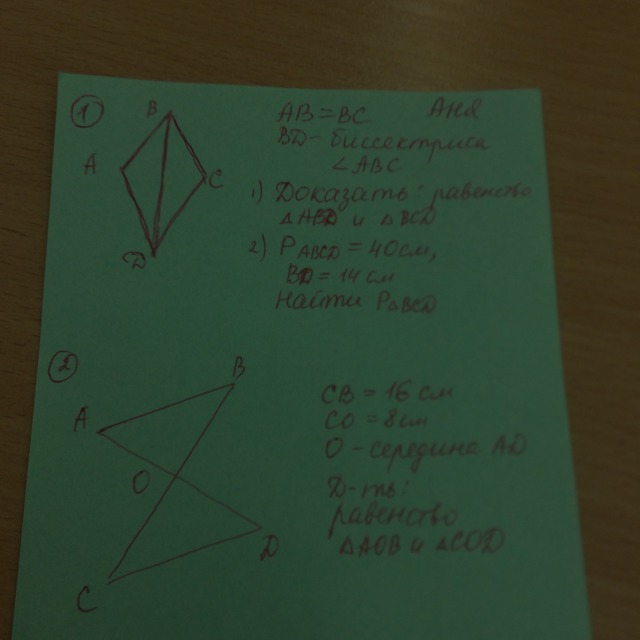 1
B
A
C
D
AB = BC
BD - биссектриса
∠ABC
1) Доказать: равенство
△ABD и △BCD
2) P ABCD = 40 см,
BD = 14 см
Найти P BCD
2
B
A
O
D
C
CB = 16 см
CO = 8 см
O - середина AD
Д-ть:
равенство
△AOB и △COD